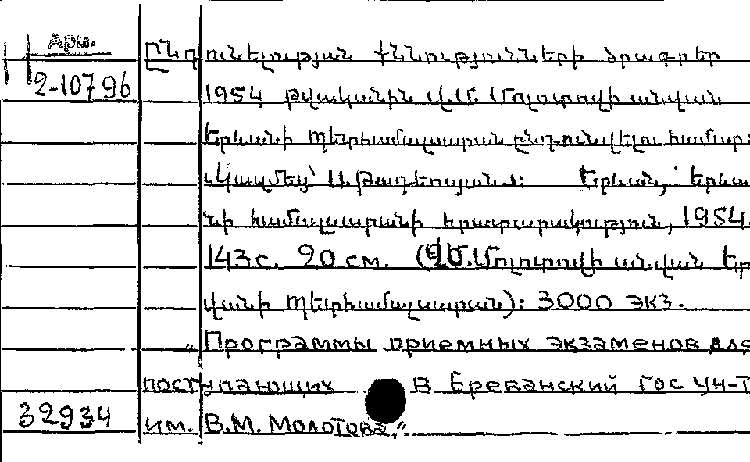 Арм. Ընդունելության քննությունների ծրագրեր
2-10796 1954 թվականին Վ.Մ. Մոլոտովի անվան
Երևանի պետհամալսարան ընդունվելու համար:
Կազմեց՝ Ա. Թադևոսյանը: Երևան, Երևա
նի համալսարանի հրատարակություն, 1954.
143 с. 20 см. (Վ.Մ. Մոլոտովի անվան Եր
վանի պետհամալսարան): 3000 экз.
„Программы приемных экзаменов для
поступающих в Ереванский Гос ун-т
32934 им. В.М. Молотова."